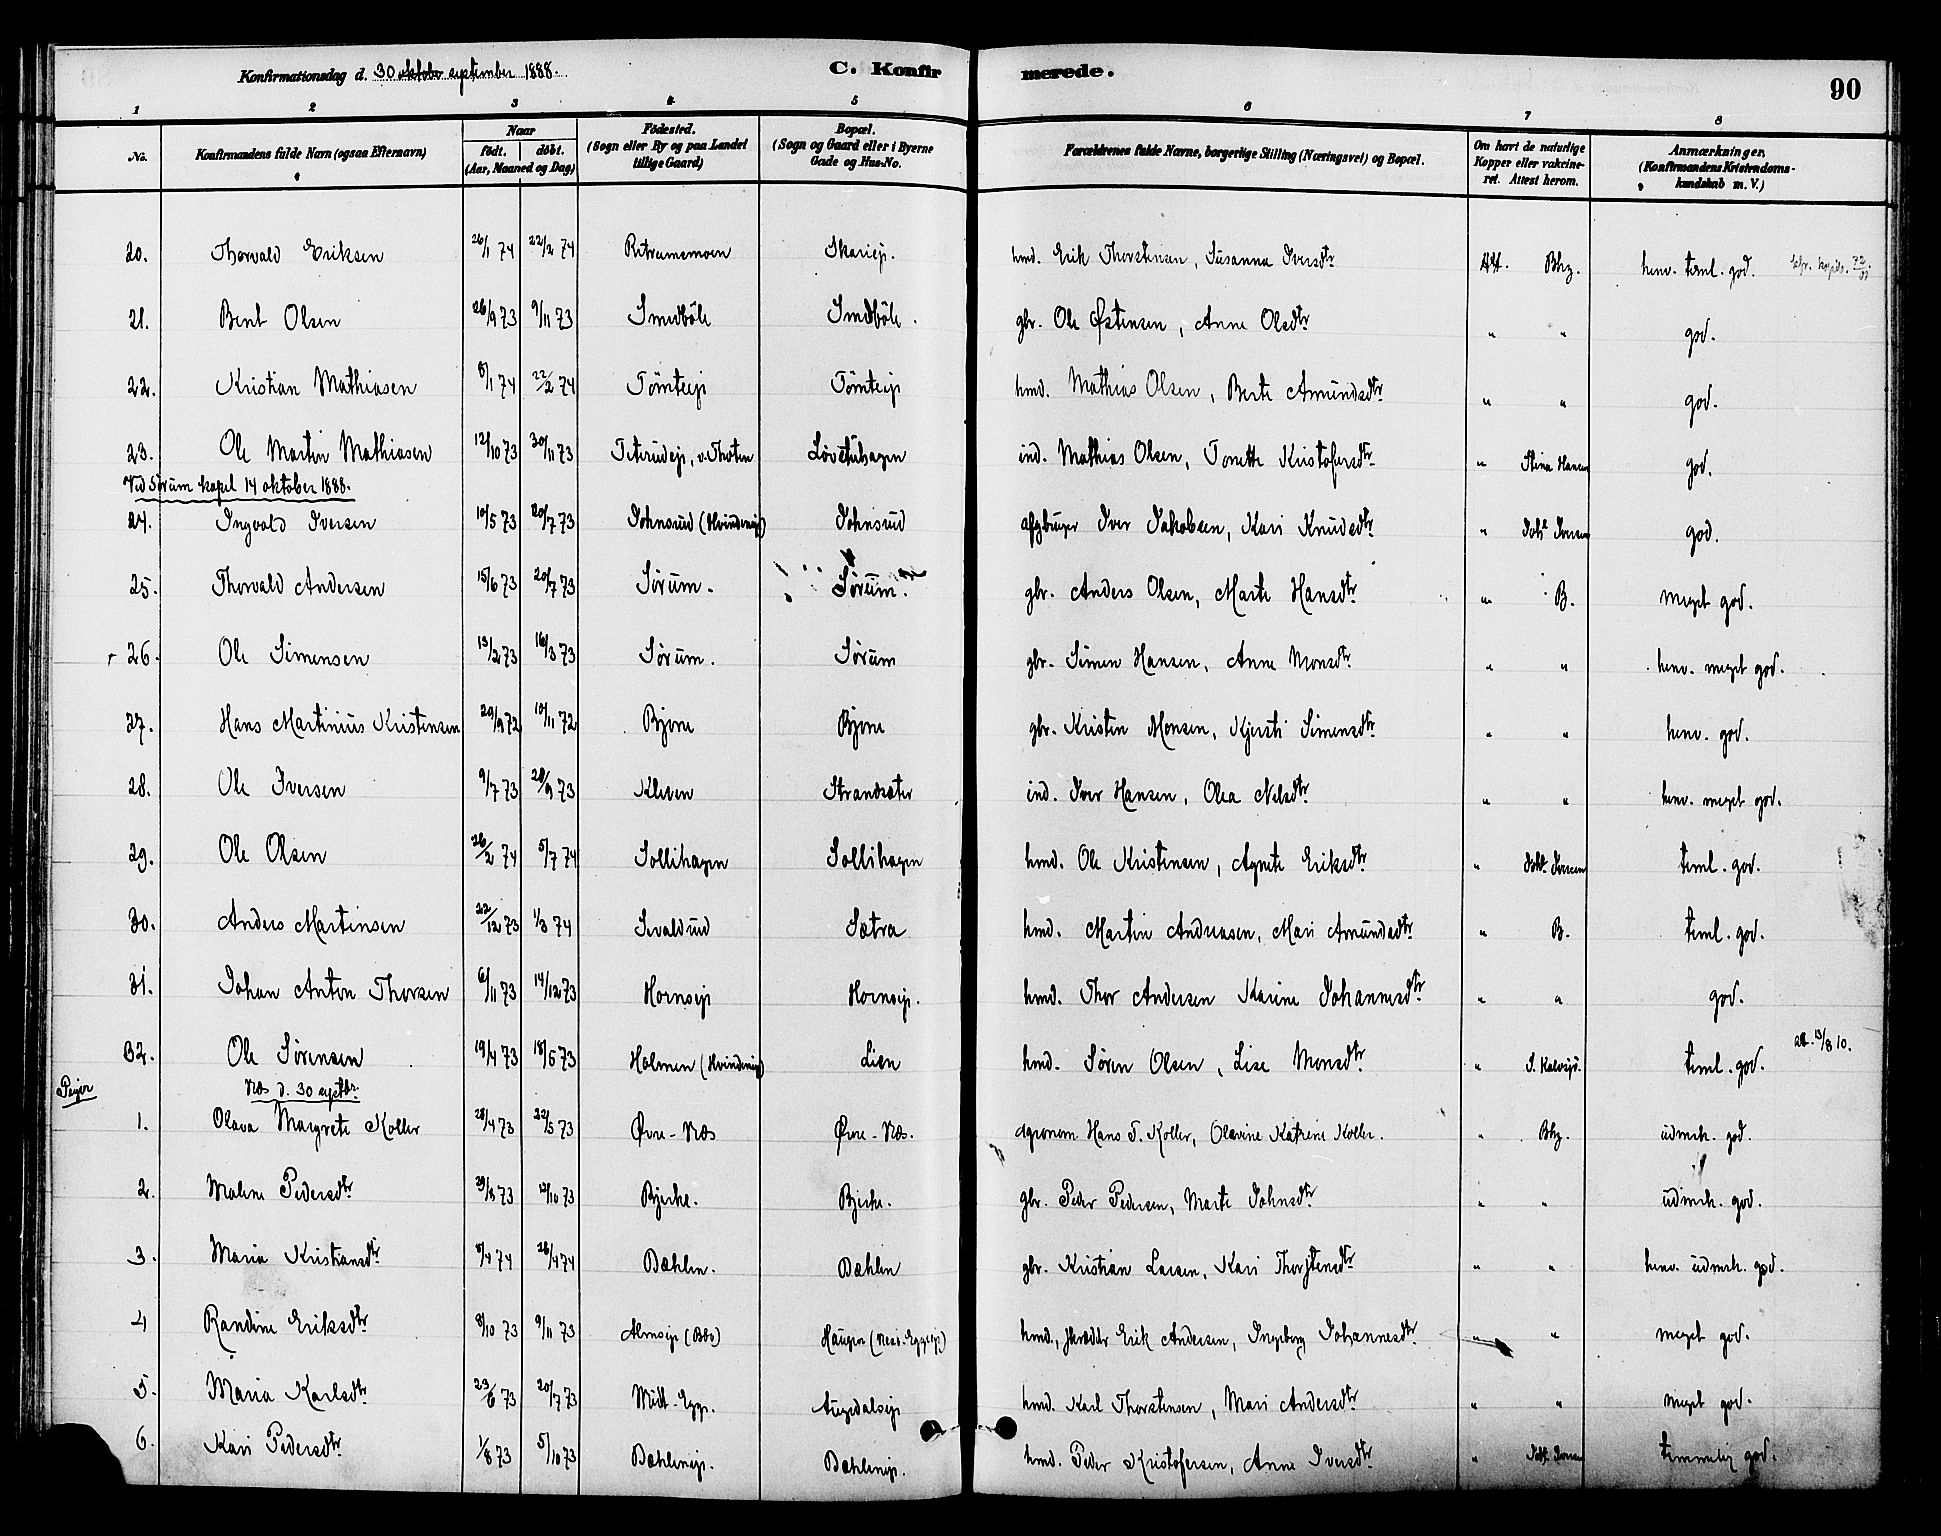 Konfirmationsdag d. 30 oktober september 1888. C. Konfirmerede. 90
1 2 3 4 5 6 7 8
No. Konfirmandens fulde Navn (ogsaa Efternavn) Naar født. døbt. (Aar, Maaned og Dag) Fødested. (Sogn eller By og paa Landet tillige Gaard) Bopæl. (Sogn og Gaard eller i Byerne Gade og Hus-No. Forældrenes fulde Navne, borgerlige Stilling (Næringsvei) og Bopæl. Om havt de naturlige Kopper eller vakcineret. Attest herom. Anmærkninger. (Konfirmandens Kristendomskundskab m. V.)
20. Thorvald Eriksen 26/1 74 22/2 74 Skariej. hmd. Erik Thorstensen, Susanna Iversdtr Att. Bhz. henv. teml. god.
21. Bent Olsen 26/9 73 9/11 73 Smedbøle Smedbøle. gbr. Ole Østensen, Anne Olsdtr " " god.
22. Kristian Mathiasen 8/1 74 22/2 74 Tømteij Tømteij hmd. Mathias Olsen, Berte Amundsdtr " " god.
23. Ole Martin Mathiasen 12/10 73 30/11 73 Løvstuhagen ind. Mathias Olsen, Tonette Kristofersdtr " Stina Hansen god.
Ved Sørum kapel 14 oktober 1888.
24. Ingvald Iversen 10/5 73 20/7 73 Johnsrud (Hvindenij) Johnsrud afgbruger Iver Jakobsen, Kari Knudsdtr " Joh. Iversen god.
25. Thorvald Andersen 15/6 73 20/7 73 Sørum. Sørum. gbr. Anders Olsen, Marte Hansdtr " B. meget god.
26. Ole Simensen 13/2 73 16/3 73 Sørum. Sørum gbr. Simen Hansen, Anne Monsdtr " " henv. meget god.
27. Hans Martinius Kristensen 29/9 72 10/11 72 Bjone Bjone gbr. Kristen Monsen, Kjersti Simensdtr " " henv. god.
28. Ole Iversen 9/7 73 28/9 73 Kleven Strandsæter ind. Iver Hansen, Olea Nelsdtr " " henv. meget god.
29. Ole Olsen 26/2 74 5/7 74 Sollihagen Sollihagen hmd. Ole Kristensen, Agnete Eriksdtr " Joh. Iversen teml. god.
30. Anders Martinsen 22/12 73 1/3 74 Sevaldrud Sætra hmd. Martin Andreasen, Mari Amundsdtr " B. teml. god.
31. Johan Anton Thorsen 6/11 73 14/12 73 Hornseij Hornseij. hmd. Thor Andersen Karine Johannesdtr " " god.
32. Ole Sørensen 19/4 73 18/5 73 Holmen (Hvindenij) Lien hmd. Søren Olsen, Lise Monsdtr " S. Kalvsjø. teml. god. att. 13/8 10.
Piger Næs d. 30 septbr.
1. Olava Margrete Koller 28/4 73 22/5 73 Øvre-Næs Øvre-Næs. agronom Hans T. Koller, Olavine Katrine Koller. " Bhz. udmrk. god.
2. Malene Pedersdtr 29/8 73 12/10 73 Bjerke. Bjerke. gbr. Peder Pedersen, Marte Johnsdtr " " udmrk. god.
3. Maria Kristiansdtr 8/4 74 26/4 74 Dæhlen. Dæhlen gbr. Kristian Larsen, Kari Thorstensdtr " " henv. udmrk. god.
4 Randine Eriksdtr 8/10 73 9/11 73 hmd., skrædder Erik Andersen, Ingeborg Johannesdtr " " meget god.
5. Maria Karlsdtr 23/6 73 20/7 73 Midt-Egge. Augedalseij hmd. Karl Thorstensen, Mari Andersdtr " " meget god.
6. Kari Pedersdtr 1/8 73 5/10 73 Dæhleneij. Dæhleneij. hmd. Peder Kristofersen, Anne Iversdtr " Joh. Iversen temmelig god.